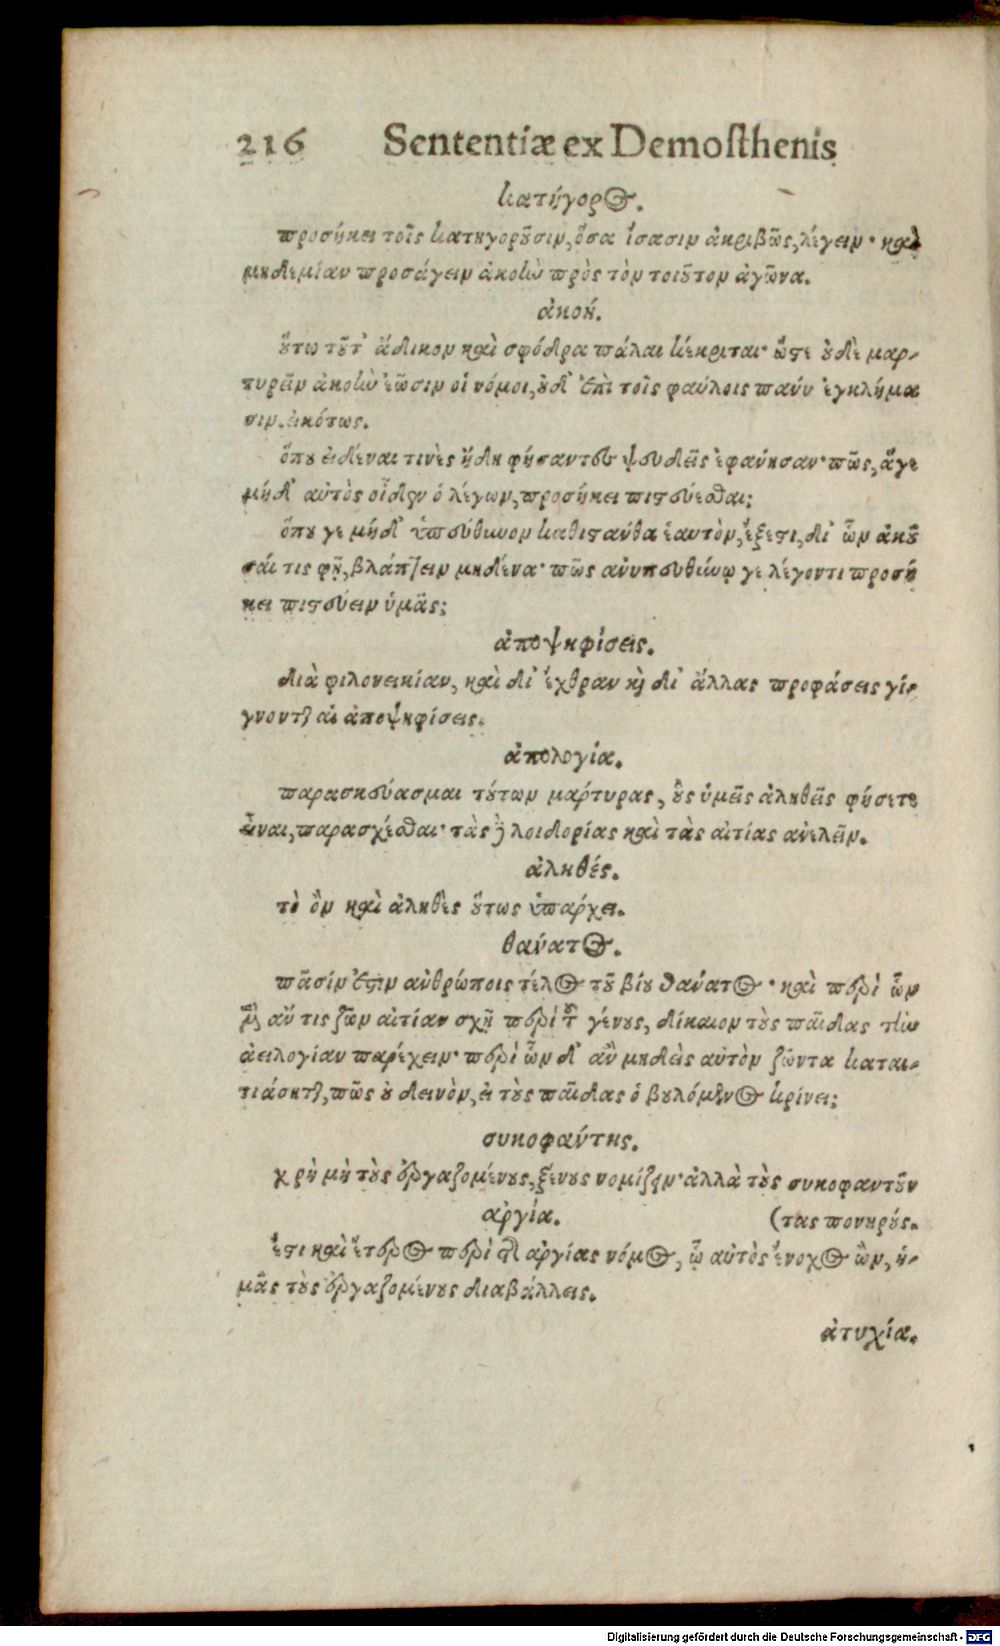 216 Sententiæ ex Demoſthenis
κατήγορος.
προσήκει τοῖς κατηγοροῦσιν, ὅσα ἴσασιν ἀκριβῶς, λέγειν· καὶ
μηδεμίαν προσάγειν ἀκοὴν πρὸς τὸν τοιοῦτον ἀγῶνα.
ἀκοή.
οὕτω τοῦτ' ἄδικον καὶ σφόδρα πάλαι κέκριται· ὥστε οὐδὲ μαρ-
τυρεῖν ἀκοὴν ἐῶσιν οἱ νόμοι, οὐδ' ἐπὶ τοῖς φαύλοις πάνυ ἐγκλήμα
σιν. εἰκότως.
ὅπου εἰδέναι τινὲς ἤδη φήσαντες ψευδεῖς ἐφάνησαν· πῶς, ἅγε
μήδ' αὐτὸς οἶδεν ὁ λέγων, προσήκει πιστεύεσθαι;
ὅπου γε μήδ' ὑπεύθυνον καθιστάνθα ἑαυτὸν, ἔξεστι, δι' ὧν ἀκοῦ
σαί τις φῇ, βλάπτειν μηδένα· πῶς ἀνυπευθύνῳ γε λέγοντι προσή
κει πιστεύειν ὑμᾶς;
ἀποψηφίσεις.
διὰ φιλονεικίαν, καὶ δι' ἔχθραν καὶ δι' ἄλλας προφάσεις γί-
γνονται αἱ ἀποψηφίσεις.
ἀπολογία.
παρασκεύασμαι τούτων μάρτυρας, οὓς ὑμεῖς ἀληθεῖς φήσετε
εἶναι, παρασχέσθαι· τὰς δὲ λοιδορίας καὶ τὰς αἰτίας ἀνελεῖν.
ἀληθές.
τὸ ὂν καὶ ἀληθὲς οὕτως ὑπάρχει.
θάνατος.
πᾶσίν ἐστιν ἀνθρώποις τέλος τοῦ βίου θάνατος· καὶ περὶ ὧν
μὲν ἄν τις ζῶν αἰτίαν σχῇ περὶ τοῦ γένους, δίκαιον τοὺς παῖδας τὴν
ἀειλογίαν παρέχειν· περὶ ὧν δ' ἂν μηδεὶς αὐτὸν ζῶντα καται-
τιάσηται, πῶς οὐ δεινὸν, εἰ τοὺς παῖδας ὁ βουλόμενος κρίνει;
συκοφάντης.
χρὴ μὴ τοὺς ἐργαζομένους, ξένους νομίζειν· ἀλλὰ τοὺς συκοφαντοῦν
ἀργία. (τας πονηρούς.
ἔστι καὶ ἕτερος περὶ τῆς ἀργίας νόμος, ᾧ αὐτὸς ἔνοχος ὢν, ἡ-
μᾶς τοὺς ἐργαζομένους διαβάλλεις.
ἀτυχία.
Digitalisierung gefördert durch die Deutsche Forschungsgemeinschaft - DFG